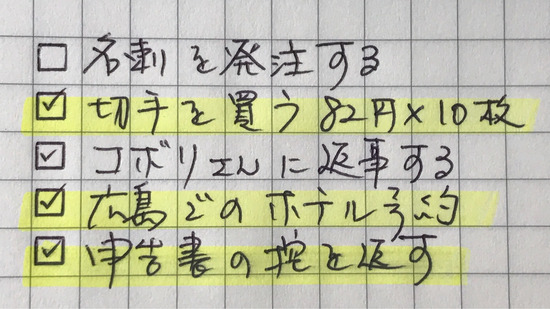 名刺を発注する
切手を買う 82円×10枚
コボリさんに返事する
広島でのホテル予約
申告書の控を返す